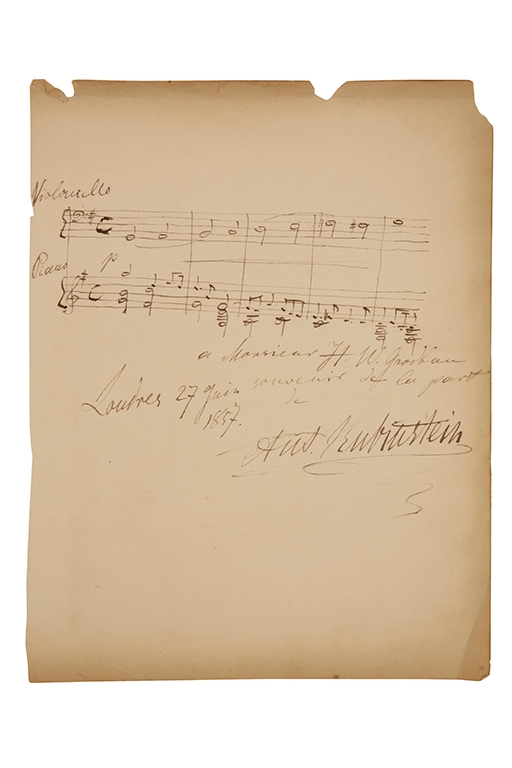 Violoncello
Piano p
a Monsieur H. W.
Londres 27 juin souvenir de la part
1857. de
Ant. Rubinstein